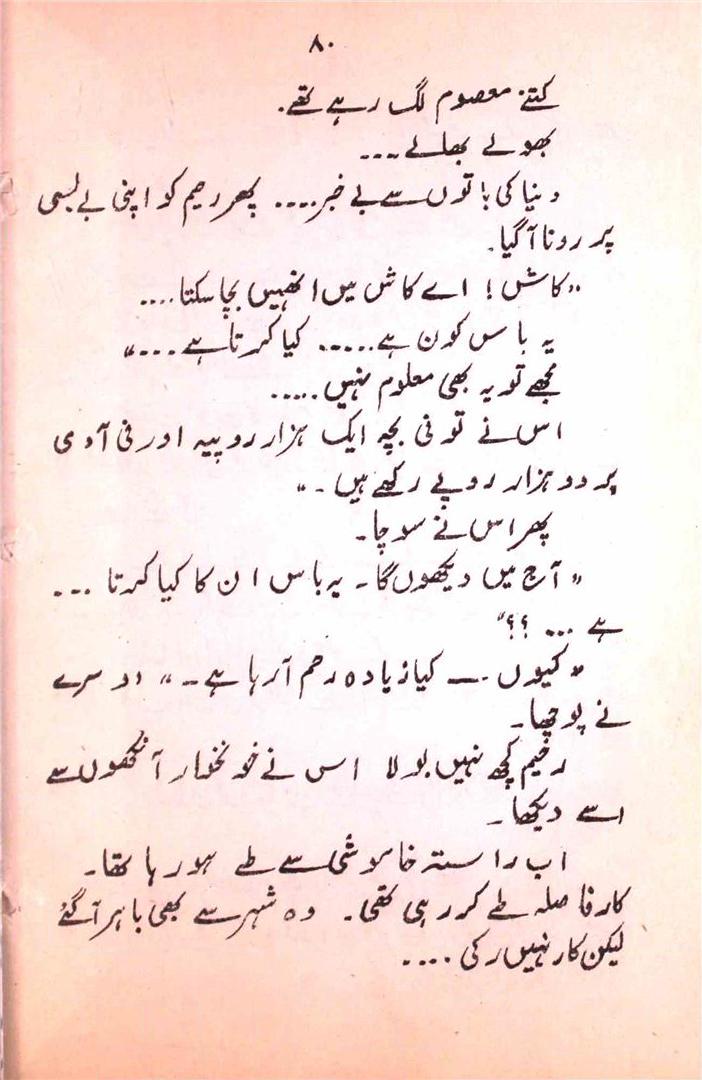 ۸۰
کتنے معصوم لگ رہے تھے۔
بھولے بھالے ۔۔۔
دنیا کی باتوں سے بے خبر ۔۔۔۔ پھر رحیم کو اپنی بے بسی
پر رونا آگیا۔
"کاش! اے کاش میں انھیں بچا سکتا ۔۔۔۔
یہ باس کون ہے ۔۔۔۔۔ کیا کرتا ہے ۔۔۔"
مجھے تو یہ بھی معلوم نہیں ۔۔۔۔۔
اس نے تو فی بچہ ایک ہزار روپیہ اور فی آدمی
پر دو ہزار روپے رکھے ہیں ۔"
پھر اس نے سوچا۔
"آج میں دیکھوں گا۔ یہ باس ان کا کیا کرتا ۔۔۔
ہے ۔۔۔ ؟؟"
"کیوں ۔ — کیا زیادہ رحم آرہا ہے ۔" دوسرے
نے پوچھا۔
رحیم کچھ نہیں بولا اس نے خونخوار آنکھوں سے
اسے دیکھا۔
اب راستہ خاموشی سے طے ہو رہا تھا۔
کار فاصلہ طے کر رہی تھی۔ وہ شہر سے بھی باہر آگئے
لیکن کار نہیں رکی ۔۔۔۔